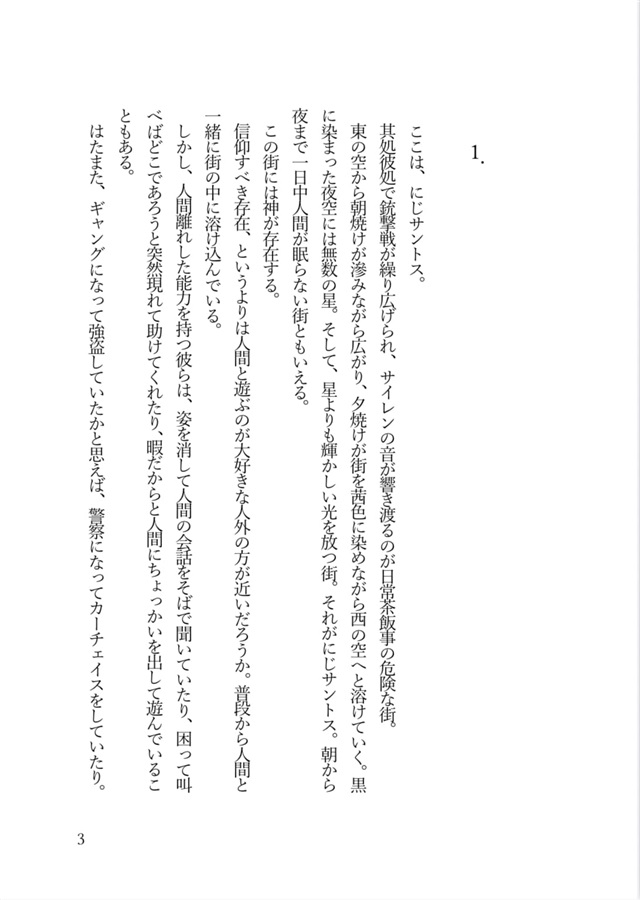 1.
ここは、にじサントス。
其処彼処で銃撃戦が繰り広げられ、サイレンの音が響き渡るのが日常茶飯事の危険な街。
東の空から朝焼けが滲みながら広がり、夕焼けが街を茜色に染めながら西の空へと溶けていく。黒
に染まった夜空には無数の星。そして、星よりも輝かしい光を放つ街。それがにじサントス。朝から
夜まで一日中人間が眠らない街ともいえる。
この街には神が存在する。
信仰すべき存在、というよりは人間と遊ぶのが大好きな人外の方が近いだろうか。普段から人間と
一緒に街の中に溶け込んでいる。
しかし、人間離れした能力を持つ彼らは、姿を消して人間の会話をそばで聞いていたり、困って叫
べばどこであろうと突然現れて助けてくれたり、暇だからと人間にちょっかいを出して遊んでいるこ
ともある。
はたまた、ギャングになって強盗していたかと思えば、警察になってカーチェイスをしていたり。
3